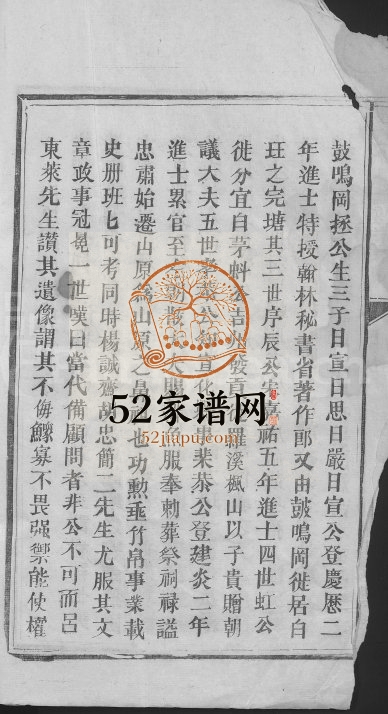 鼓鳴岡拯公生三子曰宣曰思曰嚴曰宣公登慶歷二
年進士特授翰林秘書省著作郎又由鼓鳴岡徙居白
玨之完塘其三世序辰公宋嘉祐五年進士四世虹公
徙分宜白茅蚪 吉 發 羅溪楓山以子貴贈朝
議大夫五世 恭公 宣化 柴恭公登建炎二年
進士累官至 朝 大 服奉勅葬祭祠祿謚
忠肅始遷山原為山原之 也功勲垂竹帛事業載
史册班七可考同時楊誠齋胡忠簡二先生尤服其文
章政事冠冕一世嘆曰當代備顧問者非公不可而呂
東萊先生讚其遺像謂其不侮鰥寡不畏强禦能使權
52家谱网
52jiapu.com